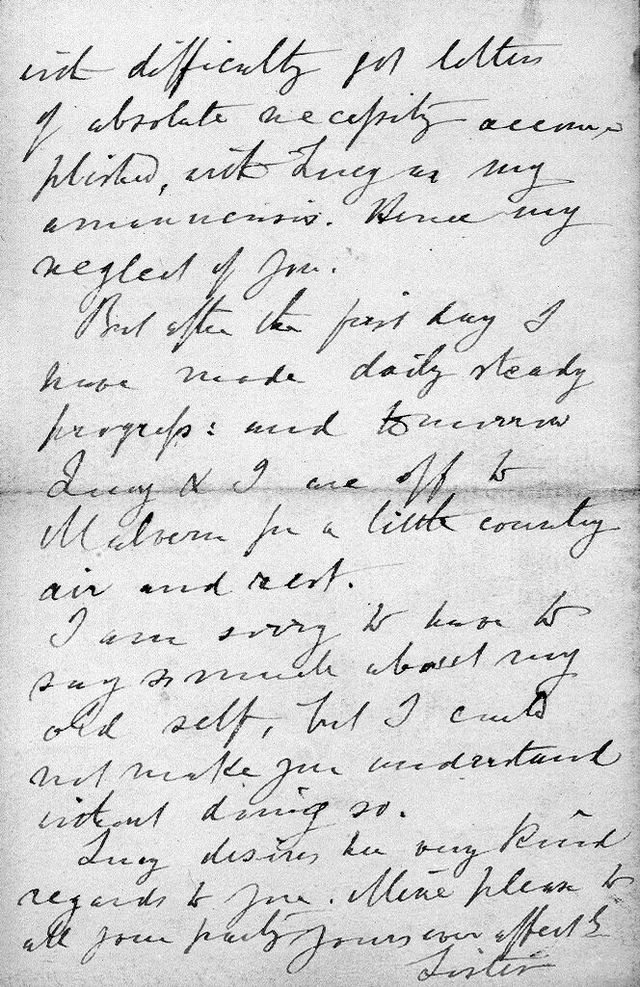 with difficulty got letters
of absolute necessity accom-
plished, with Lucy as my
amanuensis. Hence my
neglect of you.
But after the first day I
have made daily steady
progress: and tomorrow
Lucy & I are off to
Malvern for a little country
air and rest.
I am sorry to have to
say so much about my
old self, but I could
not make you understand
without doing so.
Lucy desires her very kind
regards to you. Mine please to
all your party. Yours ever affectly
Lister